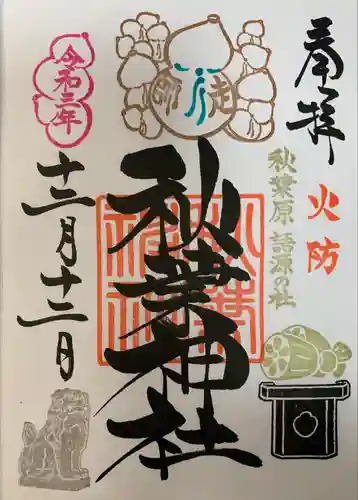 奉拝
火防
秋葉原 語源の社
秋葉神社
令和三年
十二月十二日